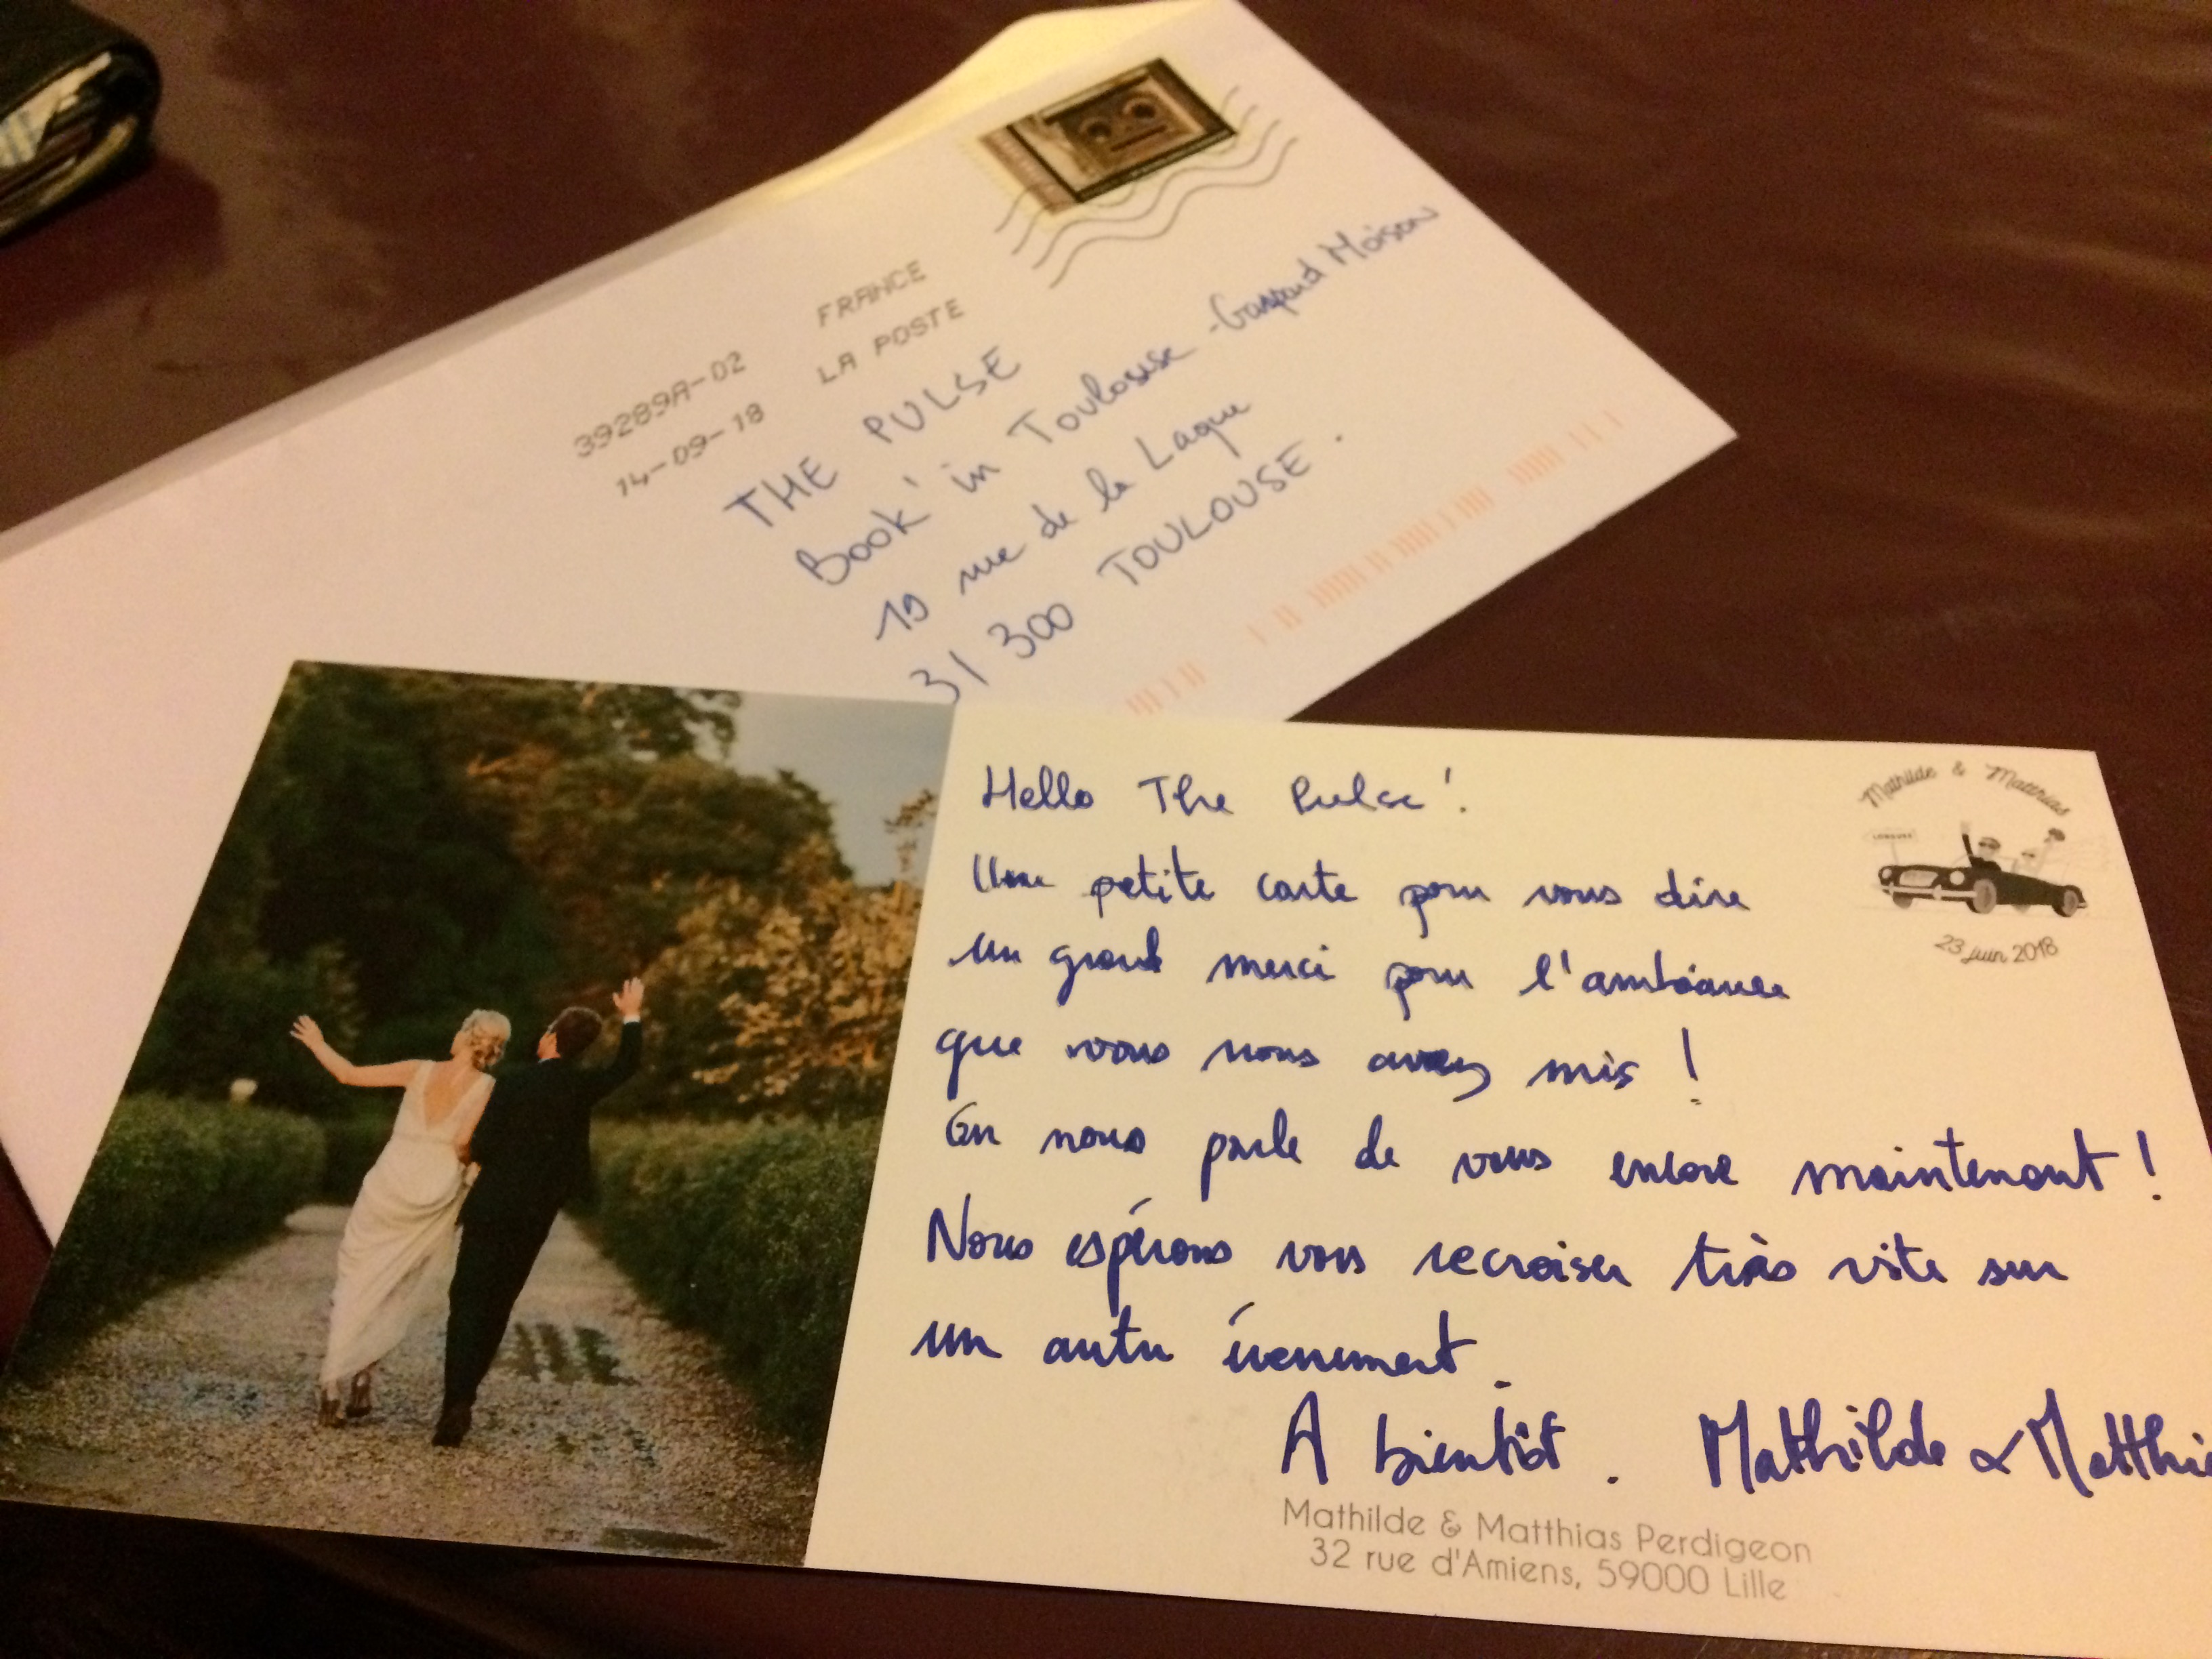 FRANCE
LA POSTE
39289A-02
14-09-18
THE PULSE
Book' in Toulouse - Gaspard Moison
19 rue de la Laque
31 300 TOULOUSE.
Hello The Pulse!
Une petite carte pour vous dire
un grand merci pour l'ambiance
que vous nous avez mis !
On nous parle de vous encore maintenant !
Nous espérons vous recroiser très vite sur
un autre évenement.
A bientôt. Mathilde & Matthi
Mathilde & Matthias
23 juin 2018
Mathilde & Matthias Perdigeon
32 rue d'Amiens, 59000 Lille